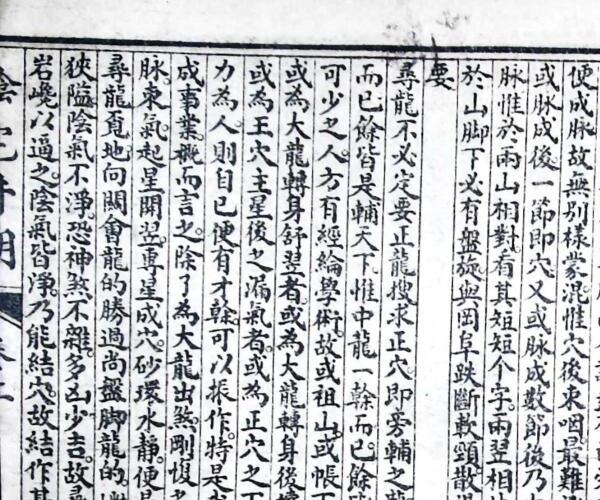 便成脉故無別樣蒙混惟穴後東咽最難
或脉成後一節即穴又或脉成數節後乃
脉惟於兩山相對看其短短个字兩翌相
於山脚下必有盤旋與岡阜跌斷軟頸散
要
尋龍不必定要正龍搜求正穴即旁輔之龍
而已餘皆是輔天下惟中龍一榦而已餘
可少之人方有經綸學術故或祖山或帳下
或為大龍轉身舒翌者或為大龍轉身後
或為王穴主星後之漏氣者或為正穴之下
力為人則自已便有才榦可以振作特是
成事業概而言之除了為大龍出煞剛愎之
脉束氣起星開翌專星成穴砂環水靜便是
尋龍覔地向關會龍的勝過尚盤脚龍的
狹隘陰氣不淨恐神煞不雜多凶少吉故
岩巉以過之陰氣皆淨乃能結穴故結作其